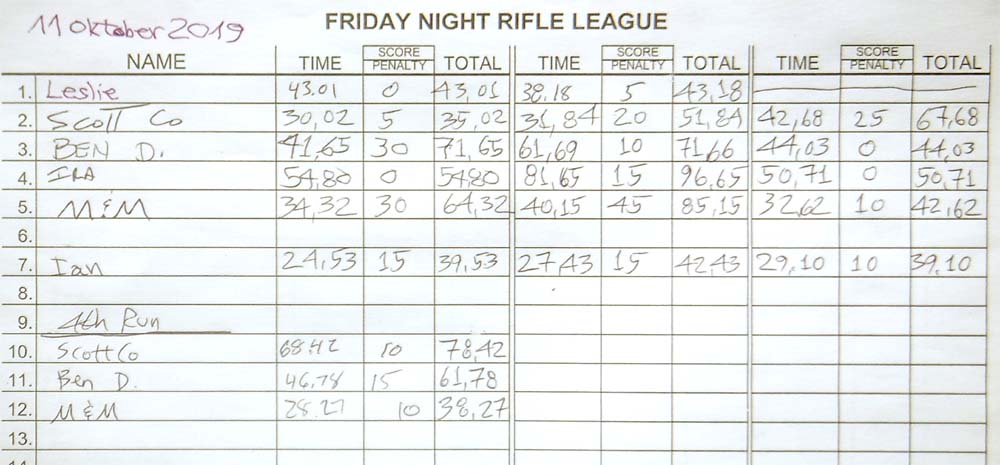 11 oktober 2019 FRIDAY NIGHT RIFLE LEAGUE
NAME TIME SCORE PENALTY TOTAL TIME SCORE PENALTY TOTAL TIME SCORE PENALTY TOTAL
1. Leslie 43.01 0 43,01 38,18 5 43,18
2. Scott Co 30,02 5 35,02 31,84 20 51,84 42,68 25 67,68
3. BEN D. 41,65 30 71,65 61,69 10 71,66 44,03 0 44,03
4. IRA 54,80 0 54,80 81,65 15 96,65 50,71 0 50,71
5. M&M 34,32 30 64,32 40,15 45 85,15 32,62 10 42,62
6.
7. Ian 24,53 15 39,53 27,43 15 42,43 29,10 10 39,10
8.
9. 4th Run
10. Scott Co 68.42 10 78,42
11. Ben D. 46,78 15 61,78
12. M&M 28.27 10 38,27
13.